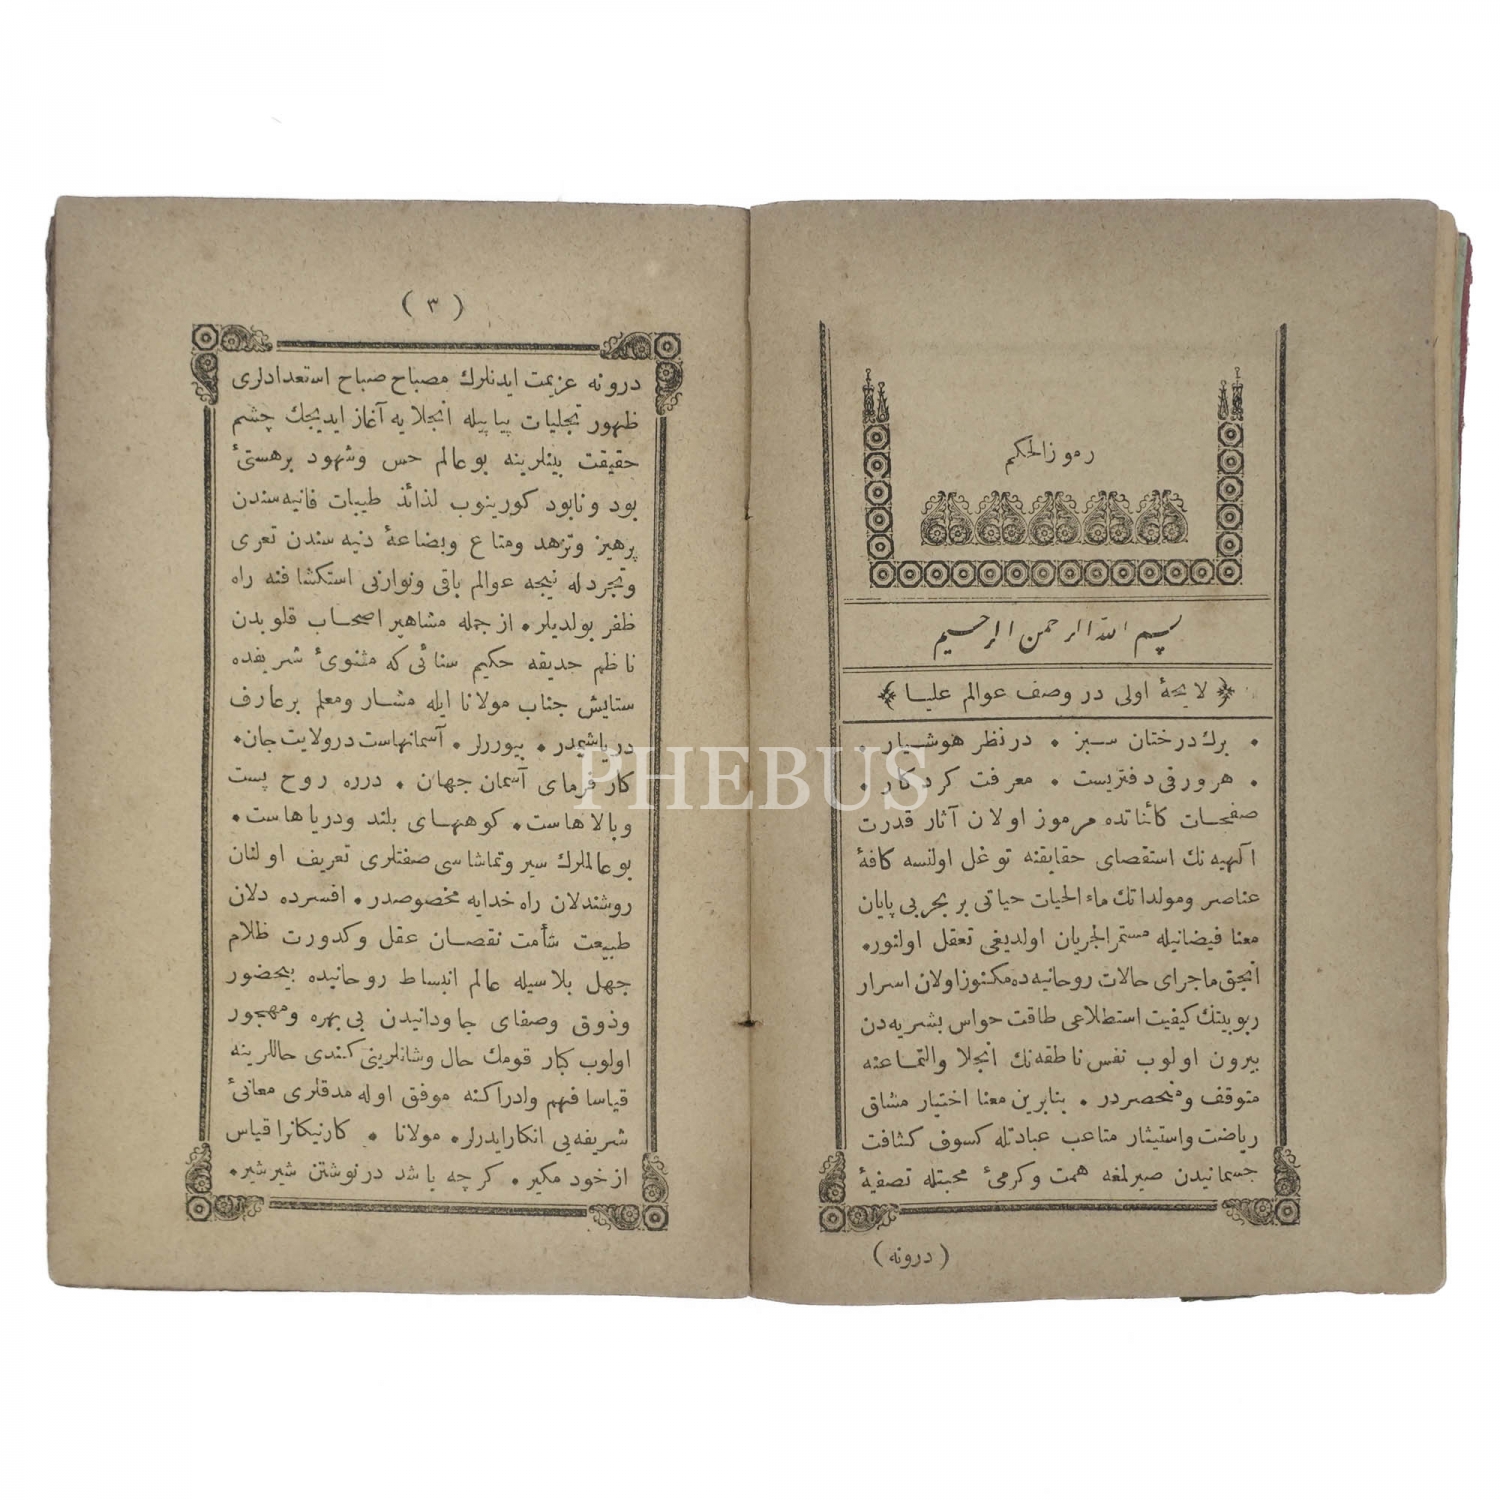 رموز الحكم
بسم الله الرحمن الرحيم
لايحهٔ اولى در وصف عوالم عليا
• برك درختان سبز • در نظر هوشيار •
• هر ورقى دفتريست • معرفت كردكار •
صفحات كائناتده مرموز اولان آثار قدرت
آلهيه نك استقصاى حقايقنه توغل اولنسه كافهٔ
عناصر ومولداتك ماء الحيات حياتى بر بحر بى پايان
معنا فيضانيله مستمر الجريان اولديغى تعقل اولنور.
انجق ماجراى حالات روحانيه ده مكنوز اولان اسرار
ربوبيتك كيفيت استطلاعى طاقت حواس بشريه دن
بيرون اولوب نفس ناطقه نك انجلا والتماعنه
متوقف ومنحصردر • بنابرين معنا اختيار مشاق
رياضت واستيثار متاعب عبادتله كسوف كثافت
جسمانيدن صيرلمغه همت وكرمىٔ محبتله تصفيهٔ
( درونه )
( ٣ )
درونه عزيمت ايدنلرك مصباح صباح استعدادلرى
ظهور تجليات پياپيله انجلايه آغاز ايديجك چشم
حقيقت بينلرينه بو عالم حس وشهود برهستىٔ
بود ونابود كورينوب لذائذ طيبات فانيه سندن
پرهيز وتزهد ومتاع وبضاعهٔ دنيه سندن تعرى
وتجردله نيجه عوالم باقى ونوارنى استكشافنه راه
ظفر بولديلر • از جمله مشاهير اصحاب قلوبدن
ناظم حديقه حكيم سنائى كه مثنوىٔ شريفده
ستايش جناب مولانا ايله مشار ومعلم بر عارف
درياشيمدر • بيوررلر • آسمانهاست در ولايت جان•
كار فرماى آسمان جهان • درره روح پست
وبالاهاست • كوههاى بلند ودرياهاست •
بو عالملرك سير وتماشاسى صفتلرى تعريف اولنان
روشندلان راه خدايه مخصوصدر • افسرده دلان
طبيعت شأمت نقصان عقل وكدورت ظلام
جهل بلاسيله عالم انبساط روحانيده بيحضور
وذوق وصفاى جاودانيدن بى بهره ومهجور
اولوب كبار قومك حال وشانلرينى كندى حاللرينه
قياسا فهم وادراكنه موفق اوله مدقلرى معانىٔ
شريفه يى انكار ايدرلر • مولانا • كار نيكانرا قياس
از خود مكير • كرچه باشد در نوشتن شير شير •
PHEBUS